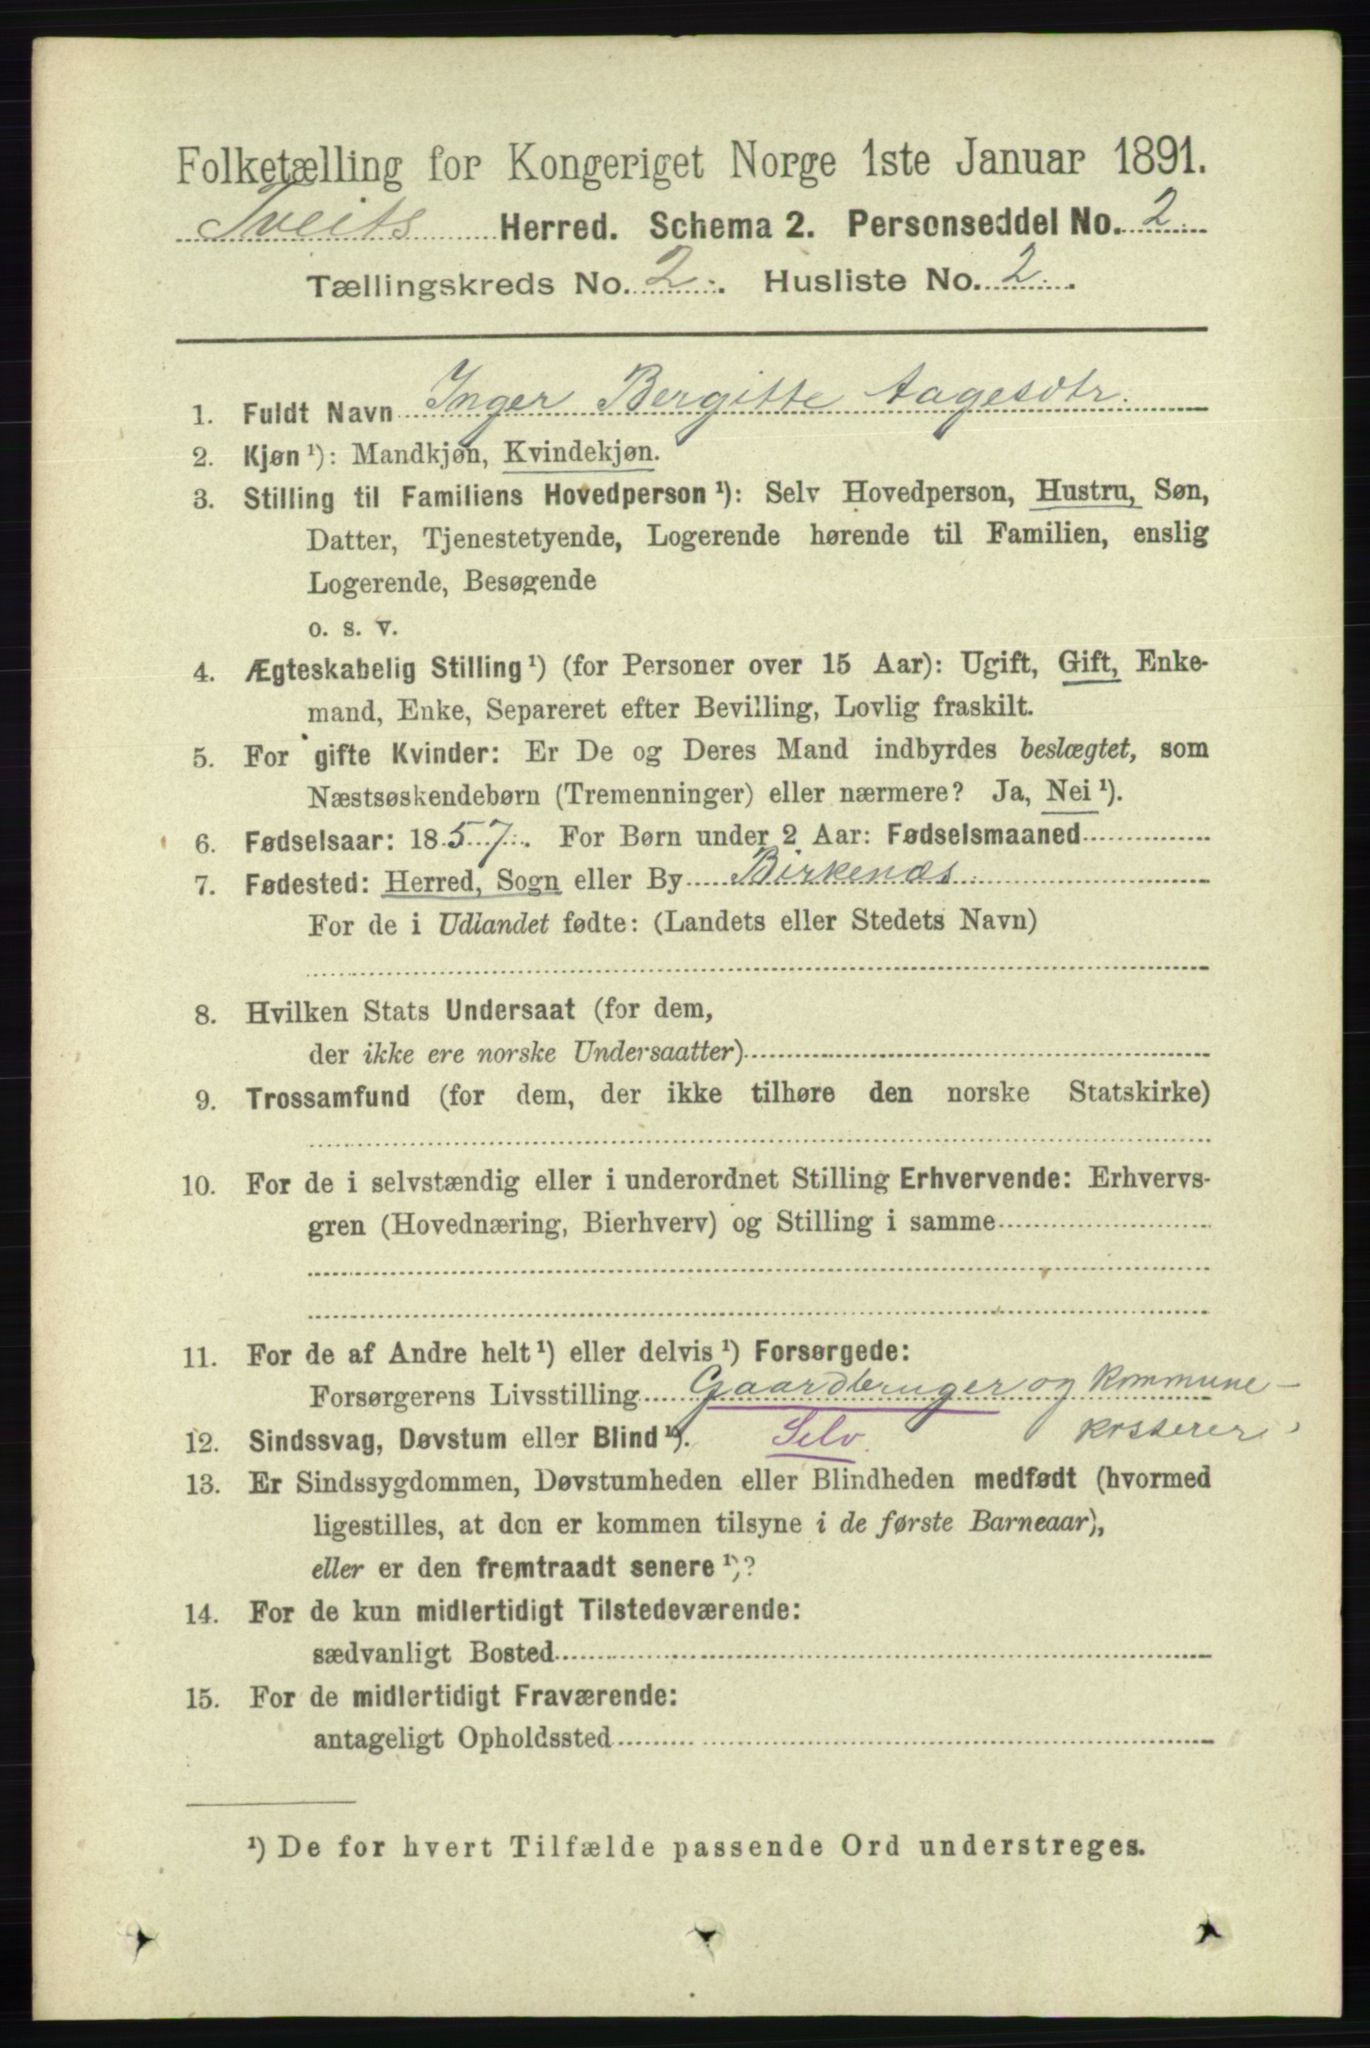 Folketælling for Kongeriget Norge 1ste Januar 1891.
Tveits Herred. Schema 2. Personseddel No. 2.
Tællingskreds No. 2. Husliste No. 2.
1. Fuldt Navn Inger Bergitte Aagesdtr.
2. Kjøn ¹): Mandkjøn, Kvindekjøn.
3. Stilling til Familiens Hovedperson ¹): Selv Hovedperson, Hustru, Søn,
Datter, Tjenestetyende, Logerende hørende til Familien, enslig
Logerende, Besøgende
o. s. v.
4. Ægteskabelig Stilling ¹) (for Personer over 15 Aar): Ugift, Gift, Enke-
mand, Enke, Separeret efter Bevilling, Lovlig fraskilt.
5. For gifte Kvinder: Er De og Deres Mand indbyrdes beslægtet, som
Næstsøskendebørn (Tremenninger) eller nærmere? Ja, Nei ¹).
6. Fødselsaar: 1857. For Børn under 2 Aar: Fødselsmaaned
7. Fødested: Herred, Sogn eller By Birkenæs.
For de i Udlandet fødte: (Landets eller Stedets Navn)
8. Hvilken Stats Undersaat (for dem,
der ikke ere norske Undersaatter)
9. Trossamfund (for dem, der ikke tilhøre den norske Statskirke)
10. For de i selvstændig eller i underordnet Stilling Erhvervende: Erhvervs-
gren (Hovednæring, Bierhverv) og Stilling i samme
11. For de af Andre helt ¹) eller delvis ¹) Forsørgede:
Forsørgerens Livsstilling Gaardbruger og Kommune-
12. Sindssvag, Døvstum eller Blind ¹). Selv. kasserer
13. Er Sindssygdommen, Døvstumheden eller Blindheden medfødt (hvormed
ligestilles, at den er kommen tilsyne i de første Barneaar),
eller er den fremtraadt senere ¹)?
14. For de kun midlertidigt Tilstedeværende:
sædvanligt Bosted
15. For de midlertidigt Fraværende:
antageligt Opholdssted
¹) De for hvert Tilfælde passende Ord understreges.